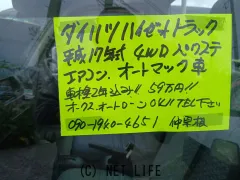 ダイハツハイゼットトラック
平成17年式 4WD パワステ
エアコン. オートマック車
車検2年込み!! 59万円!!
オークス.オートローンOK!! TEL下さい
090-1940-4651 仲里根
(C) NET LIFE